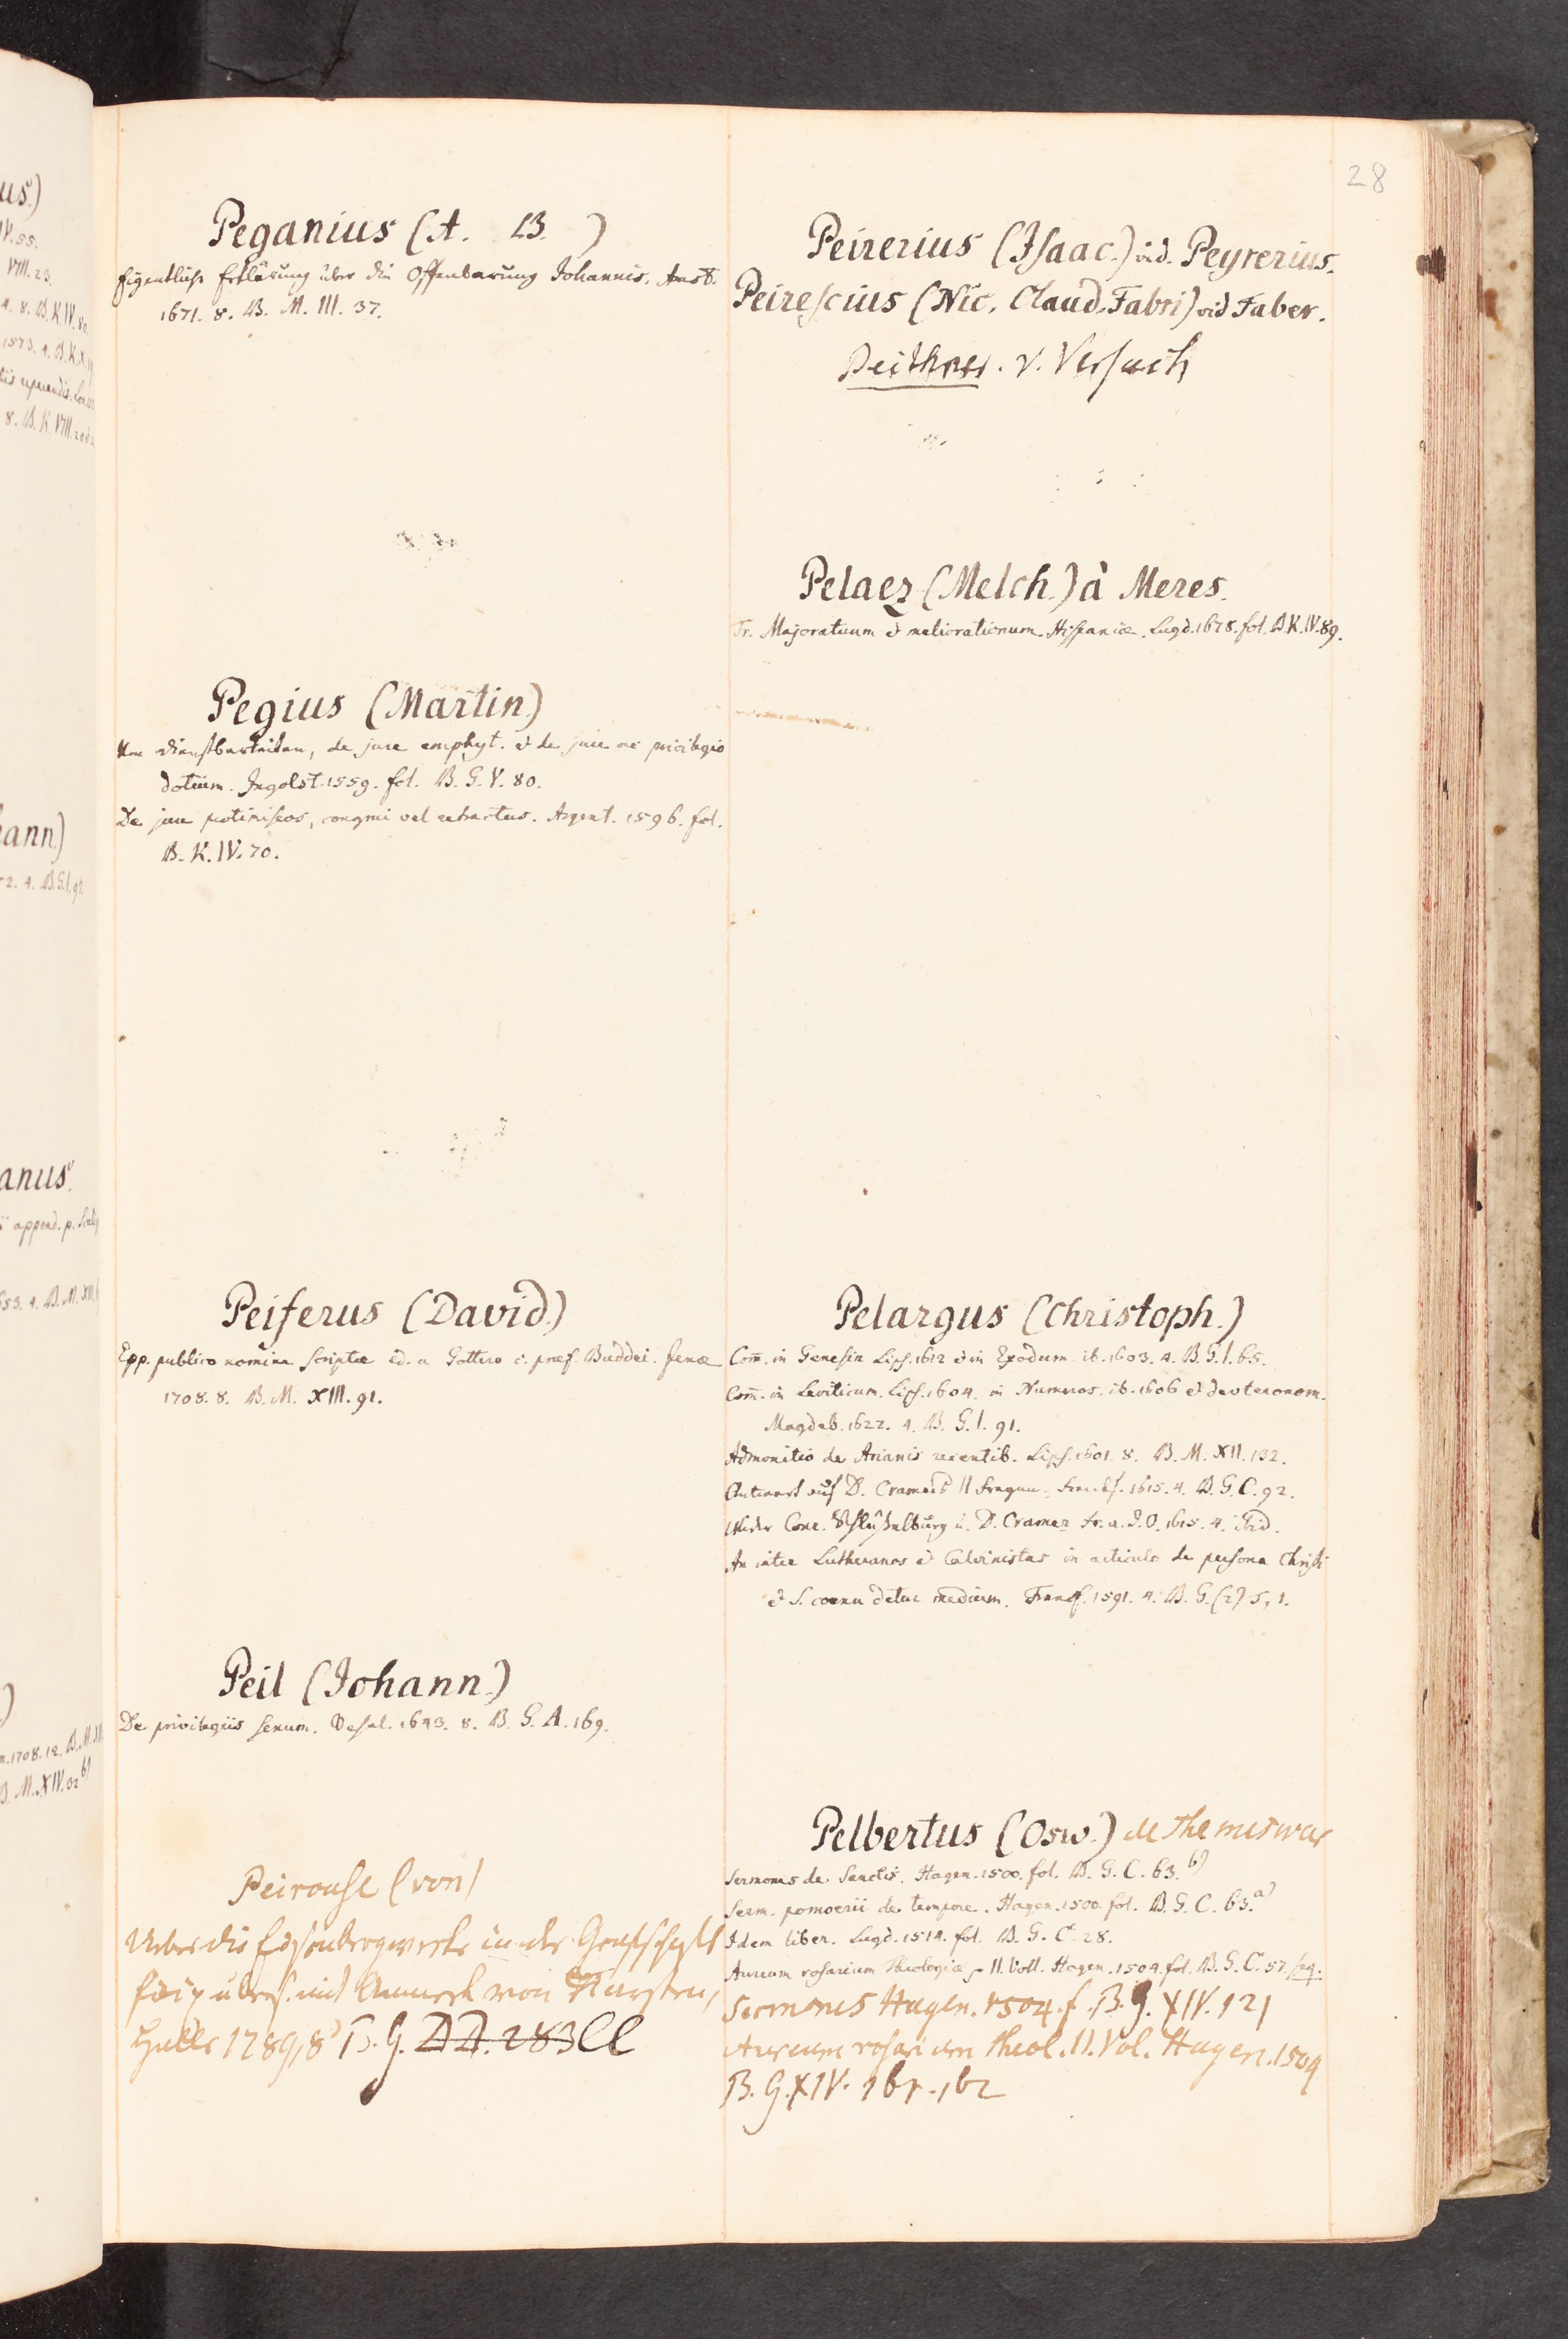 28
Peganius (A. B. )
Eigentliche Erklärung über die Offenbarung Johannis. Amst.
1671. 8. B. M. III. 37.
Pegius (Martin)
Von Dienstbarkeiten, de jure emphyt. & de jure ac privilegio
dotium. Ingolst. 1559. fol. B. G. V. 80.
De jure protimiseos, congrui vel retractus. Argent. 1596. fol.
B. K. IV. 70.
Peiferus (David.)
Epp. publico nomine scriptæ ed. a Gottero c. præf. Buddei. Jenæ
1708. 8. B. M. XIII. 91.
Peil (Johann.)
De privilegiis senum. Vesal. 1643. 8. B. G. A. 169.
Peirouse (von)
Ueber die Eisenbergwerke in der Grafschaft
Foix übers. mit Anmerk von Karsten,
Halle 1789, 8 B. G. DD. 283 CC
Peirerius (Isaac.) vid. Peyrerius.
Peirescius (Nic. Claud. Fabri) vid Faber.
Peithner. v. Versuch
Pelaez (Melch.) à Meres.
Tr. Majoratuum & meliorationum Hispaniæ. Lugd. 1678. fol. B K. IV. 89.
Pelargus (Christoph.)
Com̄. in Genesin Lips. 1612 & in Exodum ib. 1603. 4. B. G. I. 65.
Com̄. in Leviticum. Lips. 1604. in Numeros. ib. 1606 & deuteronom.
Magdeb. 1622. 4. B. G. I. 91.
Admonitio de Arianis recentib. Lips. 1601. 8. B. M. XII. 132.
Antwort auf D. Cramers II Fragen. Franckf. 1615. 4. B. G. C. 92.
Wider Conr. Schlüsselburg u. D. Cramer Fr. a. d. O. 1615. 4. Ibid.
An inter Lutheranos & Calvinistas in articulo de persona Christi
& S. coena detur medium. Francf. 1591. 4. B. G. (2) 5, 1.
Pelbertus (Osw.) de Themeswar
Sermones de Sanctis. Hagen. 1500. fol. B. G. C. 63. b)
Serm. pomoerii de tempore. Hagen. 1500 fol. B. G. C. 63. a)
Idem liber. Lugd. 1514. fol. B. G. C. 28.
Aureum rosarium Theologiæ II. Voll. Hagen. 1504. fol. B. G. C. 57. seq.
Sermones Hagen. 1504. f. B. G. XIV. 121
Aureum rosarium theol. II. Vol. Hagen. 1504
B. G. XIV. 161. 162